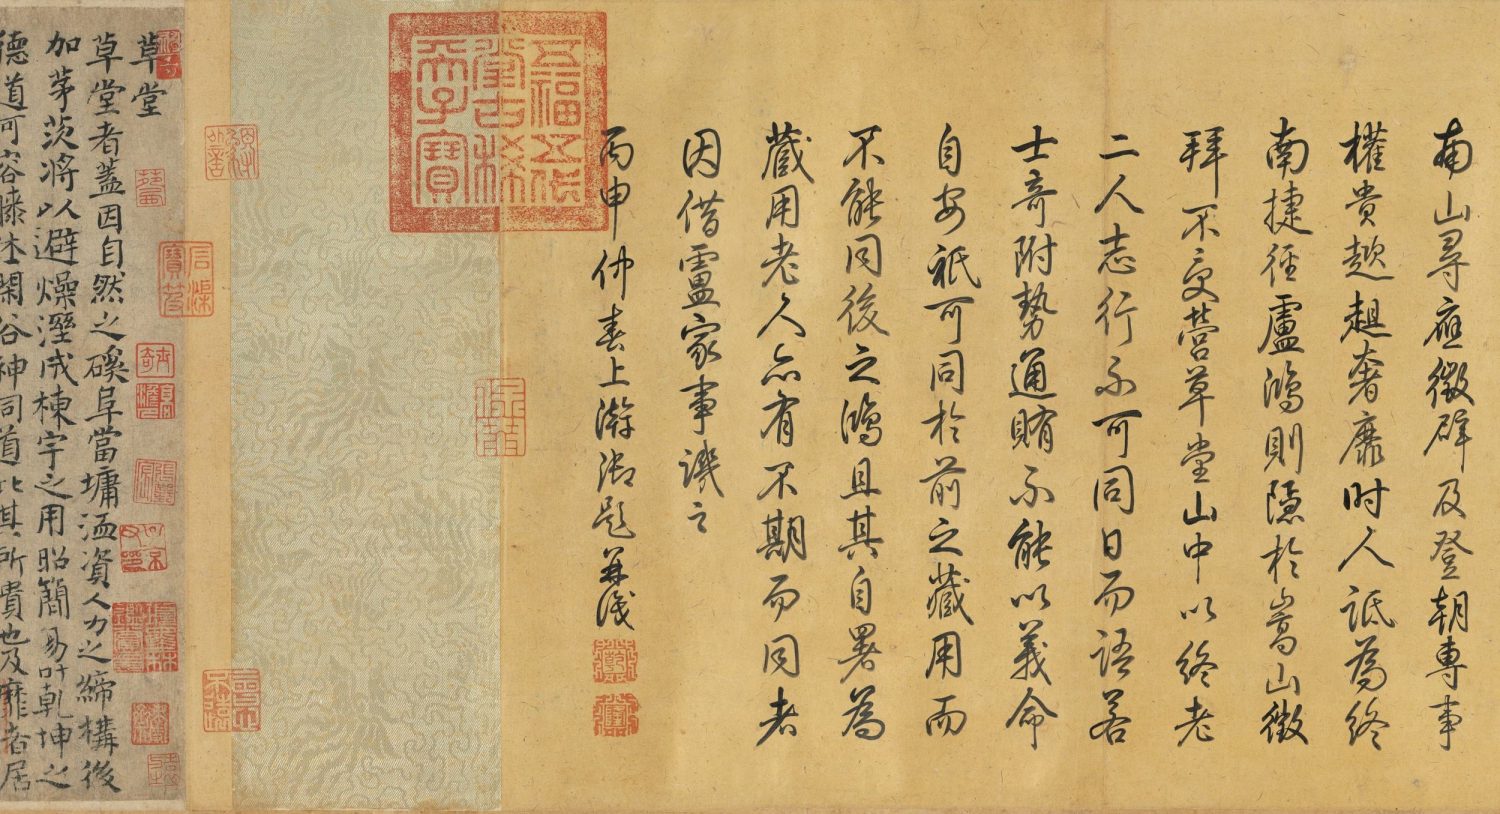 南山尋應徵辟及登朝專事
權貴趑趄奢靡時人詆為終
南捷徑盧鴻則隱於嵩山徵
拜不受營草堂山中以終老
二人志行不可同日而語若
士奇附勢通賄不能以義命
自安祇可同於前之藏用而
不能同後之鴻且其自署為
藏用老人亦有不期而同者
因借盧家事譏之
丙申仲春上澣御題並識
五福五代
堂古稀
天子寶
草堂
草堂者蓋因自然之磎阜當墉洫資人力之締構後
加茅茨將以避燥溼成棟宇之用昭簡易叶乾坤之
德道可容膝休閑谷神同道此其所貴也及靡者居